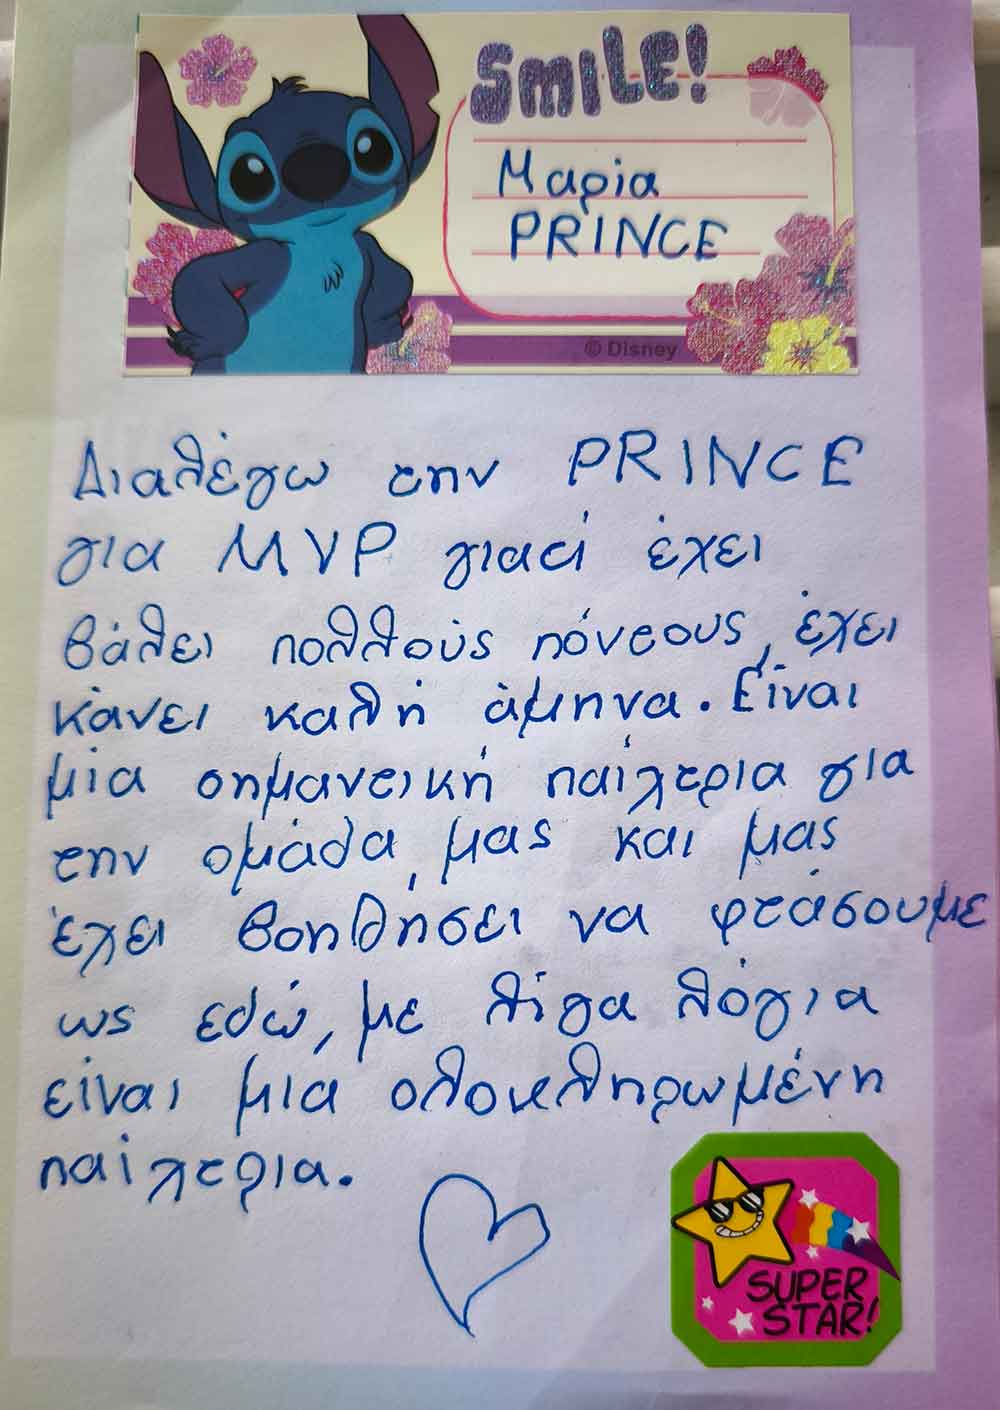 SMILE!
Μαρία
PRINCE
© Disney
Διαλέγω την PRINCE
για MVP γιατί έχει
βάλει πολλούς πόντους, έχει
κάνει καλή άμηνα. Είναι
μία σημαντική παίχτρια για
την ομάδα μας και μας
έχει βοηθήσει να φτάσουμε
ως εδώ, με λίγα λόγια
είναι μια ολοκληρωμένη
παίχτρια.
SUPER
STAR!